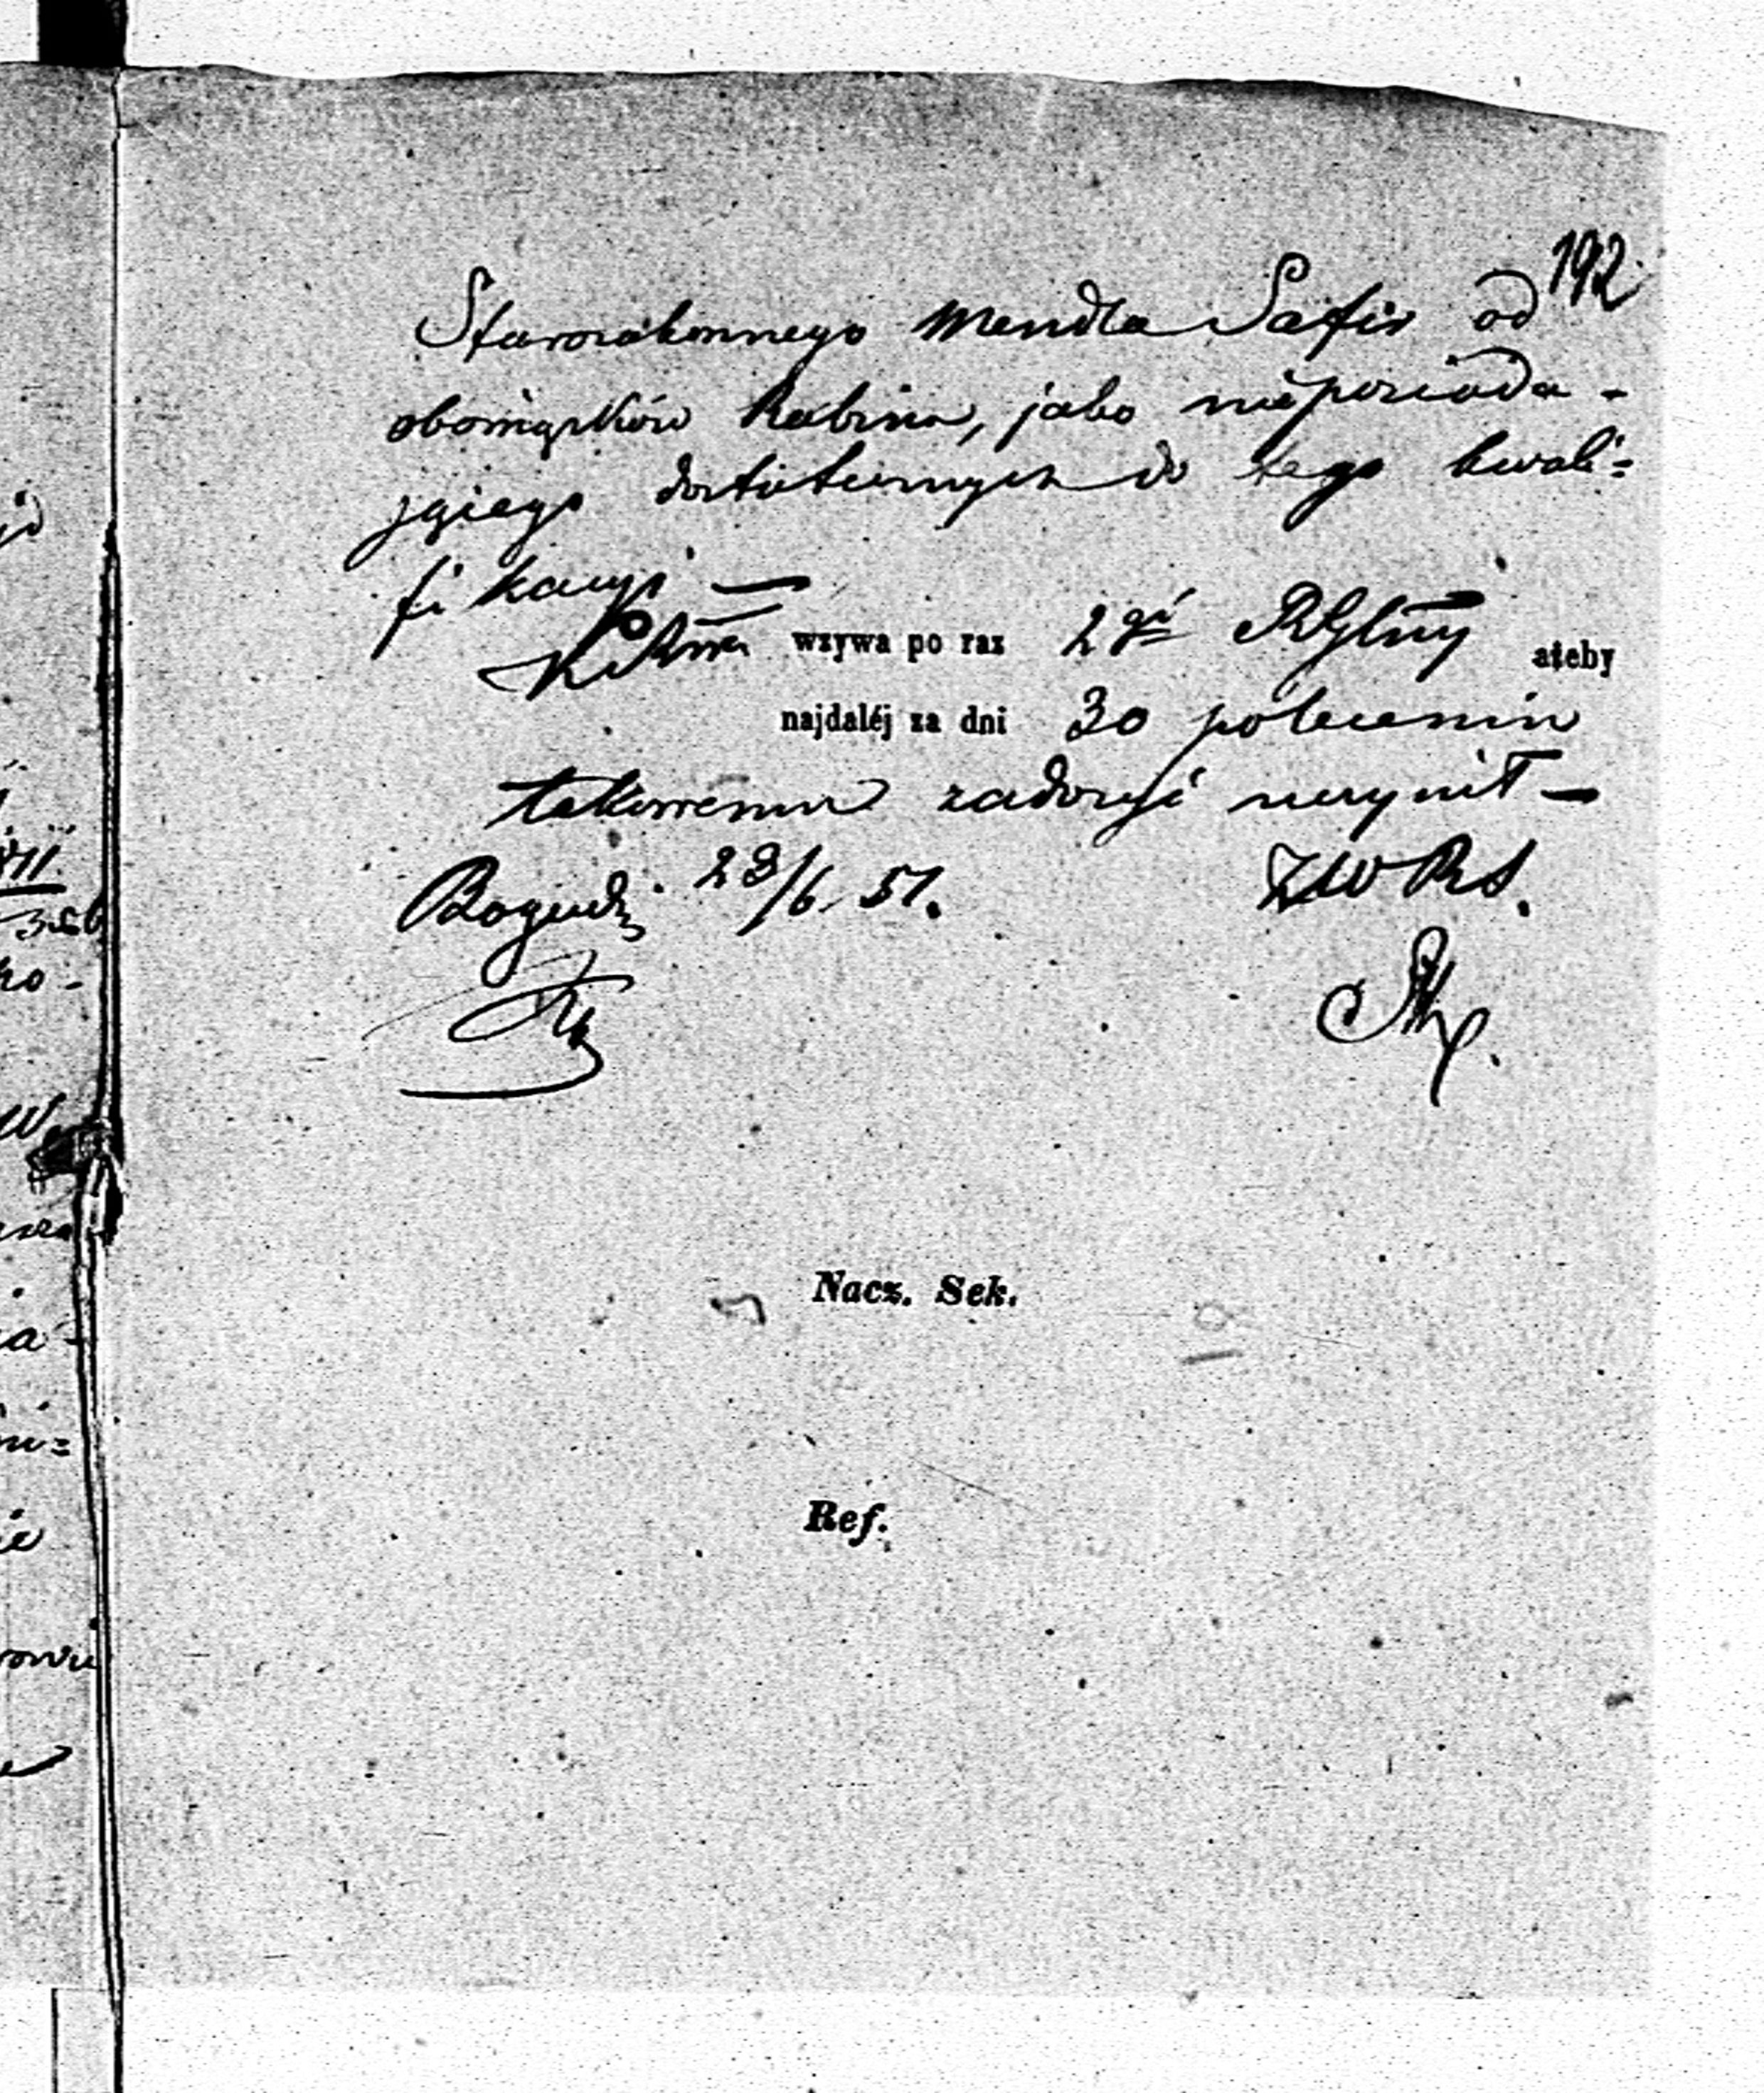 192.
Starozakonnego Mendla Safir od
obowiązków Rabina, jako nieposiada-
jącego dostatecznych do tego kwali=
fikacyi —
wzywa po raz 2gi ażeby
najdaléj za dni 30 poleceniu
takowemu zadosyć uczynił —
23/6 51.
Nacz. Sek.
Ref.